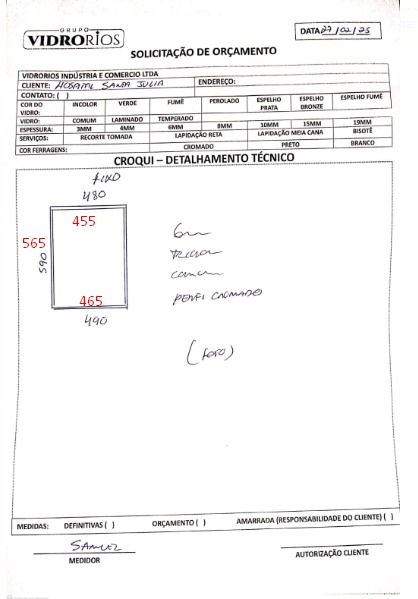 GRUPO
VIDRORIOS
DATA 27/02/25
SOLICITAÇÃO DE ORÇAMENTO
VIDRORIOS INDÚSTRIA E COMERCIO LTDA
CLIENTE: HOSPITAL SANTA JULIA ENDEREÇO:
CONTATO: ( )
COR DO VIDRO: INCOLOR VERDE FUMÊ PEROLADO ESPELHO PRATA ESPELHO BRONZE ESPELHO FUMÊ
VIDRO: COMUM LAMINADO TEMPERADO
ESPESSURA: 3MM 4MM 6MM 8MM 10MM 15MM 19MM
SERVIÇOS: RECORTE TOMADA LAPIDAÇÃO RETA LAPIDAÇÃO MEIA CANA BISOTÊ
COR FERRAGENS: CROMADO PRETO BRANCO
CROQUI – DETALHAMENTO TÉCNICO
FIXO
480
455
565
590
465
490
6mm
INCOLOR
COMUM
PERFIL CROMADO
(FOTO)
MEDIDAS: DEFINITIVAS ( ) ORÇAMENTO ( ) AMARRADA (RESPONSABILIDADE DO CLIENTE) ( )
SAMUEL
MEDIDOR
AUTORIZAÇÃO CLIENTE